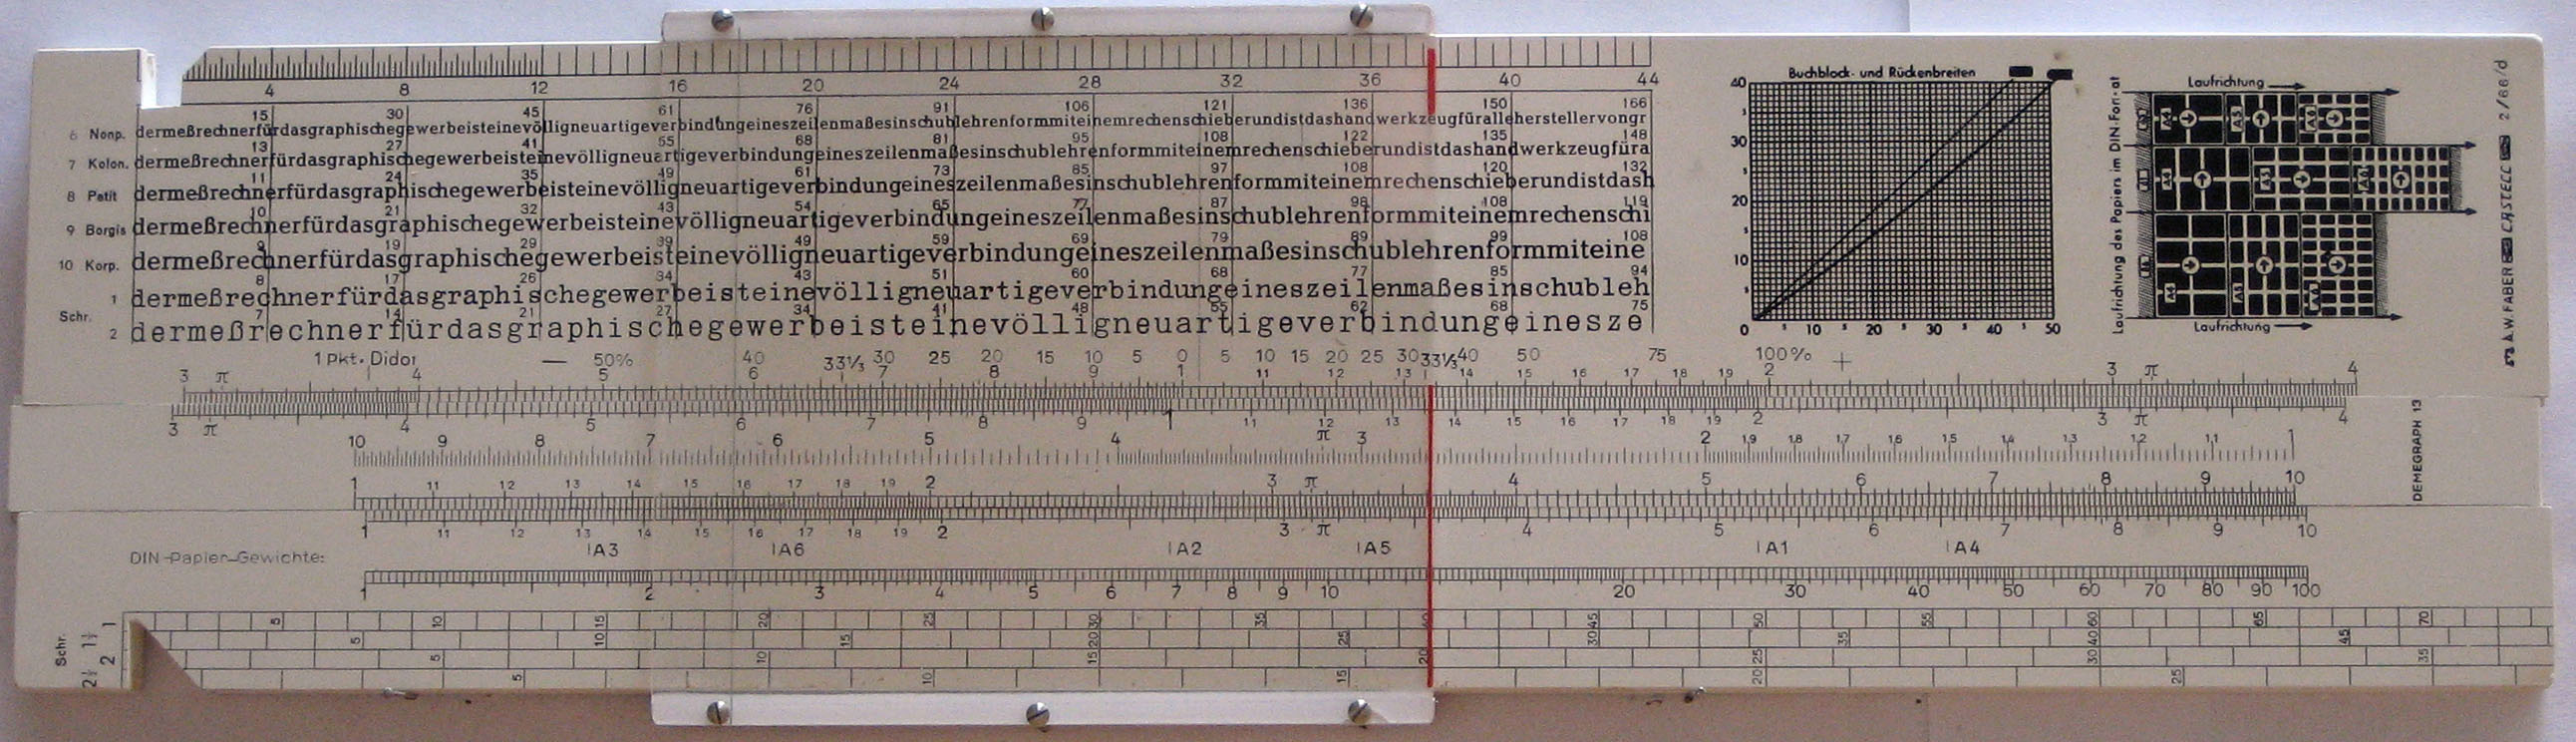 4 8 12 16 20 24 28 32 36 40 44
15 30 45 61 76 91 106 121 136 150 166
6 Nonp. dermeßrechnerfürdasgraphischegewerbeisteinevölligneuartigeverbindungeineszeilenmaßesinschublehrenformmiteinemrechenschieberundistdashandwerkzeugfüralleherstellervongr
13 27 41 55 68 81 95 108 122 135 148
7 Kolon. dermeßrechnerfürdasgraphischegewerbeisteinevölligneuartigeverbindungeineszeilenmaßesinschublehrenformmiteinemrechenschieberundistdashandwerkzeugfüra
11 24 35 49 61 73 85 97 108 120 132
8 Petit dermeßrechnerfürdasgraphischegewerbeisteinevölligneuartigeverbindungeineszeilenmaßesinschublehrenformmiteinemrechenschieberundistdash
10 21 32 43 54 65 77 87 98 108 119
9 Borgis dermeßrechnerfürdasgraphischegewerbeisteinevölligneuartigeverbindungeineszeilenmaßesinschublehrenformmiteinemrechenschi
9 19 29 39 49 59 69 79 89 99 108
10 Korp. dermeßrechnerfürdasgraphischegewerbeisteinevölligneuartigeverbindungeineszeilenmaßesinschublehrenformmiteine
8 17 26 34 43 51 60 68 77 85 94
1 dermeßrechnerfürdasgraphischegewerbeisteinevölligneuartigeverbindungeineszeilenmaßesinschubleh
Schr.
7 14 21 27 34 41 48 55 62 68 75
2 dermeßrechnerfürdasgraphischegewerbeisteinevölligneuartigeverbindungeinesze
1 Pkt. Didot — 50% 40 33⅓ 30 25 20 15 10 5 0 5 10 15 20 25 30 33⅓ 40 50 75 100% +
3 π 4 5 6 7 8 9 1 11 12 13 14 15 16 17 18 19 2 3 π 4
3 π 4 5 6 7 8 9 1 11 12 13 14 15 16 17 18 19 2 3 π 4
10 9 8 7 6 5 4 π 3 2 1,9 1,8 1,7 1,6 1,5 1,4 1,3 1,2 1,1 1
1 11 12 13 14 15 16 17 18 19 2 3 π 4 5 6 7 8 9 10
1 11 12 13 14 15 16 17 18 19 2 3 π 4 5 6 7 8 9 10
DIN-Papier-Gewichte: A3 A6 A2 A5 A1 A4
1 2 3 4 5 6 7 8 9 10 20 30 40 50 60 70 80 90 100
Schr.
1 5 10 15 20 25 30 35 45 50 55 60 65 70
1½ 5 10 15 20 25 30 35 40 45
2 5 10 15 20 25 30 35
2½ 5 10 15 20 25
Buchblock- und Rückenbreiten
40
30
20
10
0 10 20 30 40 50
Laufrichtung des Papiers im DIN-Format
Laufrichtung
A4 A5
A4 A5 A6
A4 A5 A6
Laufrichtung
A.W. FABER CASTELL 2/66/d
DEMEGRAPH 13